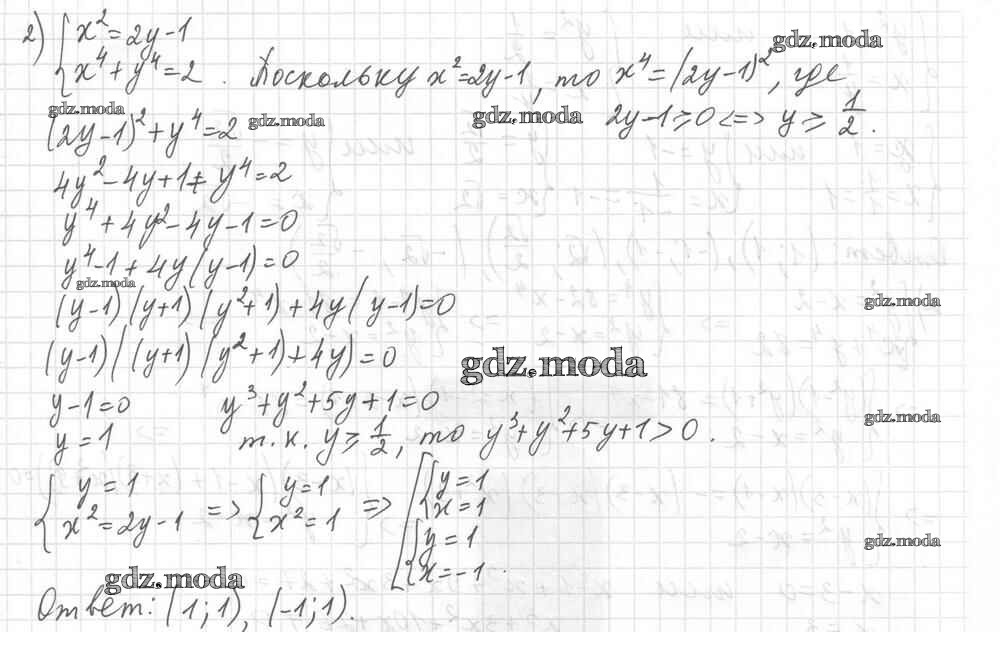 2) { x² = 2y-1
{ x⁴ + y⁴ = 2 . Поскольку x² = 2y-1, то x⁴ = (2y-1)², где
gdz.moda
(2y-1)² + y⁴ = 2
2y-1 ≥ 0 <=> y ≥ 1/2.
gdz.moda
gdz.moda
gdz.moda
4y² - 4y + 1 + y⁴ = 2
y⁴ + 4y² - 4y - 1 = 0
y⁴ - 1 + 4y(y-1) = 0
gdz.moda
(y-1)(y+1)(y²+1) + 4y(y-1) = 0
gdz.moda
(y-1)((y+1)(y²+1) + 4y) = 0
gdz.moda
y-1=0 y³ + y² + 5y + 1 = 0
gdz.moda
y = 1 т.к. y ≥ 1/2, то y³ + y² + 5y + 1 > 0.
{ y = 1 => { y = 1 => [ { y = 1
{ x² = 2y-1 { x² = 1 { x = 1
{ y = 1
gdz.moda
{ x = -1.
gdz.moda
Ответ: (1; 1), (-1; 1).